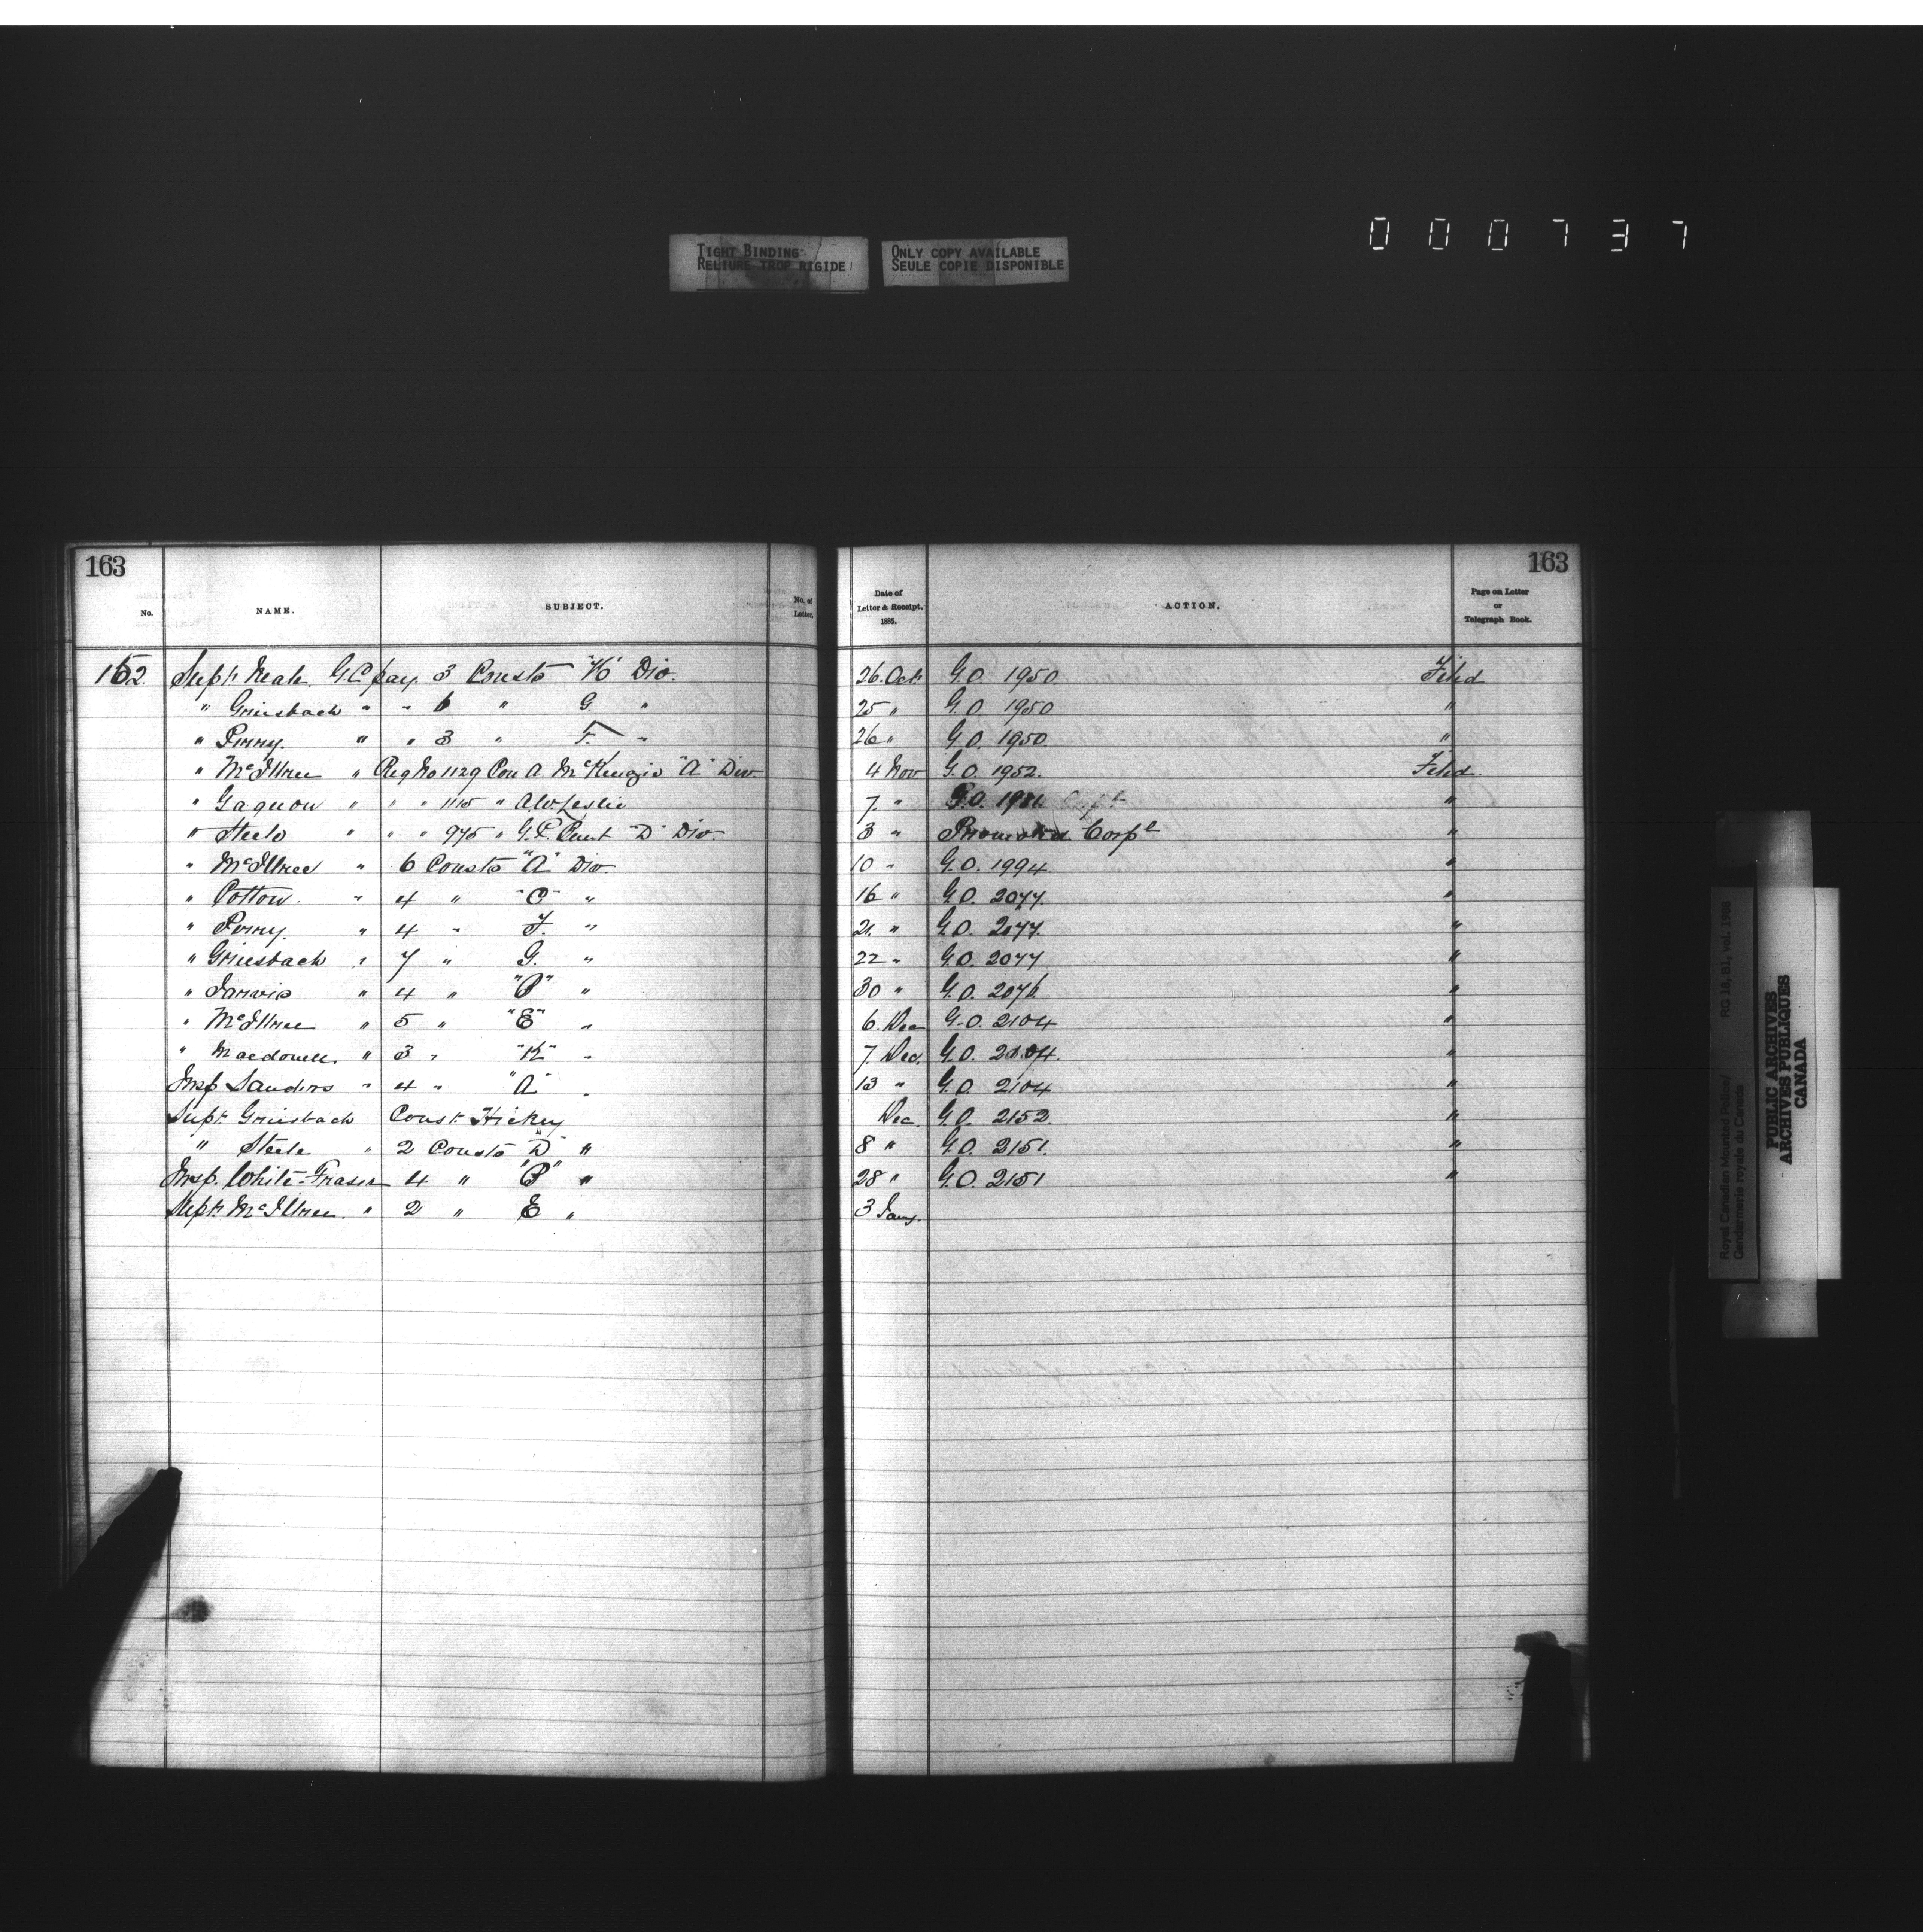 0 0 0 7 3 7
TIGHT BINDING
RELIURE TROP RIGIDE
ONLY COPY AVAILABLE
SEULE COPIE DISPONIBLE
163 163
No. NAME. SUBJECT. No. of Letter. Date of Letter & Receipt. 1885. ACTION. Page on Letter or Telegraph Book.
152. Supt. Neale. G.C. pay 3 Consts "K" Div. 26. Oct. G.O. 1950. Filed
" Griesbach " " 6 " G. " 25 " G.O. 1950 "
" Perry. " " 3 " F. " 26 " G.O. 1950. "
" McIllree " Reg No 1129 Con A McKenzie "A" Div 4 Nov G.O. 1952. Filed.
" Gagnon " " " 1115 " A.W. Leslie 7. " G.O. 1981. "
" Steele " " " 975 " G.P. "D" Div 3 " Promoted Corpl "
" McIllree " 6 Consts "A" Div. 10 " G.O. 1994. "
" Cotton. " 4 " "C" " 16 " G.O. 2077. "
" Perry. " 4 " F. " 21. " G.O. 2077. "
" Griesbach " 7 " G. " 22 " G.O. 2077 "
" Jarvis " 4 " "B" " 30 " G.O. 2076. "
" McIllree " 5 " "E" " 6. Dec G.O. 2104 "
" Macdonell. " 3 " "K" " 7. Dec. G.O. 2104. "
Insp Sanders " 4 " "A" " 13 " G.O. 2104 "
Supt. Griesbach Const. Hickey Dec. G.O. 2152. "
" Steele " 2 Consts "D" " 8 " G.O. 2151. "
Insp. White-Fraser 4 " "B" " 28 " G.O. 2151 "
Supt. McIllree. " 2 " E " 3 Jany.
Royal Canadian Mounted Police/
Gendarmerie royale du Canada
RG 18, B1, vol. 1988
PUBLIC ARCHIVES
ARCHIVES PUBLIQUES
CANADA